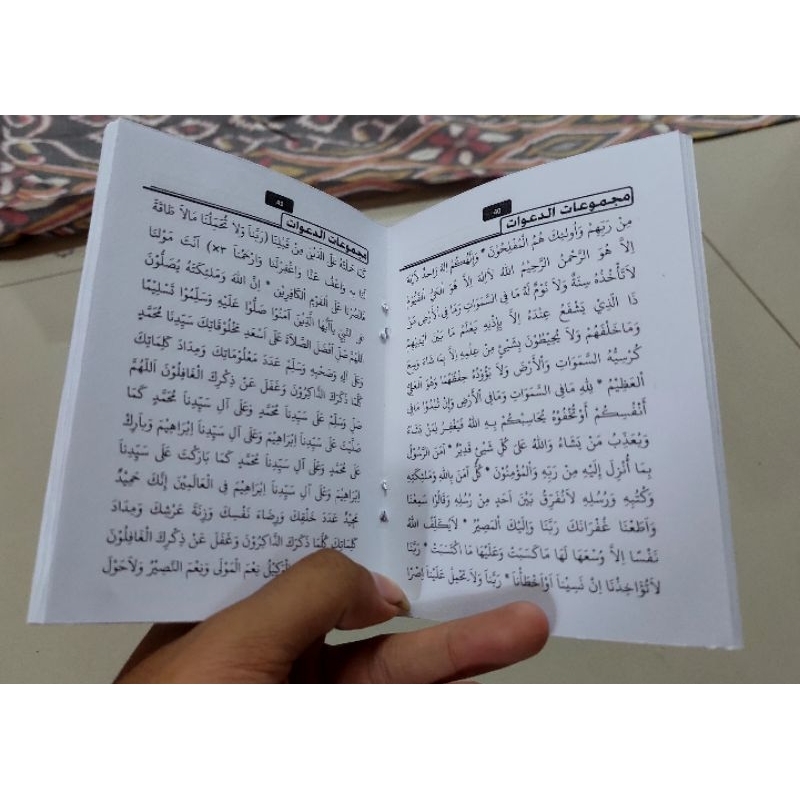 مجموعات الدعوات
40
مِنْ رَبِّهِمْ وَأُولٰئِكَ هُمُ الْمُفْلِحُوْنَ * وَإِلٰهُكُمْ إِلٰهٌ وَاحِدٌ لَاإِلٰهَ
إِلاَّ هُوَ الرَّحْمٰنُ الرَّحِيْمُ اللهُ لَاإِلٰهَ إِلاَّ هُوَ الْحَيُّ الْقَيُّوْمُ
لَاتَأْخُذُهُ سِنَةٌ وَلاَ نَوْمٌ لَهُ مَا فِى السَّمَوَاتِ وَمَا فِى الْأَرْضِ مَنْ
ذَا الَّذِيْ يَشْفَعُ عِنْدَهُ إِلاَّ بِإِذْنِهِ يَعْلَمُ مَا بَيْنَ أَيْدِيْهِمْ
وَمَاخَلْفَهُمْ وَلاَ يُحِيْطُوْنَ بِشَيْئٍ مِنْ عِلْمِهِ إِلاَّ بِمَا شَاءَ وَسِعَ
كُرْسِيُّهُ السَّمَوَاتِ وَالْأَرْضَ وَلاَ يَؤُوْدُهُ حِفْظُهُمَا وَهُوَ الْعَلِيُّ
الْعَظِيْمُ * لِلّٰهِ مَافِى السَّمَوَاتِ وَمَافِى الْأَرْضِ وَإِنْ تُبْدُوْا مَافِى
أَنْفُسِكُمْ أَوْتُخْفُوْهُ يُحَاسِبْكُمْ بِهِ اللهُ فَيَغْفِرُ لِمَنْ يَشَاءُ
وَيُعَذِّبُ مَنْ يَشَاءُ وَاللهُ عَلَى كُلِّ شَيْئٍ قَدِيْرٌ * آمَنَ الرَّسُوْلُ
بِمَا أُنْزِلَ إِلَيْهِ مِنْ رَبِّهِ وَالْمُؤْمِنُوْنَ * كُلٌّ آمَنَ بِاللهِ وَمَلٰئِكَتِهِ
وَكُتُبِهِ وَرُسُلِهِ لَانُفَرِّقُ بَيْنَ أَحَدٍ مِنْ رُسُلِهِ وَقَالُوْا سَمِعْنَا
وَأَطَعْنَا غُفْرَانَكَ رَبَّنَا وَإِلَيْكَ الْمَصِيْرُ * لَايُكَلِّفُ اللهُ
نَفْسًا إِلاَّ وُسْعَهَا لَهَا مَاكَسَبَتْ وَعَلَيْهَا مَا اكْتَسَبَتْ * رَبَّنَا
لَاتُؤَاخِذْنَا اِنْ نَسِيْنَا أَوْأَخْطَأْنَا * رَبَّنَا وَلَا تَحْمِلْ عَلَيْنَا إِصْرًا
41
مجموعات الدعوات
كَمَا حَمَلْتَهُ عَلَى الَّذِيْنَ مِنْ قَبْلِنَا (رَبَّنَا وَلَا تُحَمِّلْنَا مَالاَ طَاقَةَ
لَنَا بِهِ وَاعْفُ عَنَّا وَاغْفِرْلَنَا وَارْحَمْنَا ٣×) أَنْتَ مَوْلٰنَا
فَانْصُرْنَا عَلَى الْقَوْمِ الْكَافِرِيْنَ * إِنَّ اللهَ وَمَلٰئِكَتَهُ يُصَلُّوْنَ
عَلَى النَّبِيِّ يٰأَيُّهَا الَّذِيْنَ آمَنُوْا صَلُّوْا عَلَيْهِ وَسَلِّمُوْا تَسْلِيْمًا
اَللّٰهُمَّ صَلِّ أَفْضَلَ الصَّلَاةِ عَلَى أَسْعَدِ مَخْلُوْقَاتِكَ سَيِّدِنَا مُحَمَّدٍ
وَعَلَى آلِهِ وَصَحْبِهِ وَسَلِّمْ عَدَدَ مَعْلُوْمَاتِكَ وَمِدَادَ كَلِمَاتِكَ
كُلَّمَا ذَكَرَكَ الذَّاكِرُوْنَ وَغَفَلَ عَنْ ذِكْرِكَ الْغَافِلُوْنَ اَللّٰهُمَّ
صَلِّ وَسَلِّمْ عَلَى سَيِّدِنَا مُحَمَّدٍ وَعَلَى آلِ سَيِّدِنَا مُحَمَّدٍ كَمَا
صَلَّيْتَ عَلَى سَيِّدِنَا اِبْرَاهِيْمَ وَعَلَى آلِ سَيِّدِنَا اِبْرَاهِيْمَ وَبَارِكْ
عَلَى مُحَمَّدٍ وَعَلَى آلِ سَيِّدِنَا مُحَمَّدٍ كَمَا بَارَكْتَ عَلَى سَيِّدِنَا
اِبْرَاهِيْمَ وَعَلَى آلِ سَيِّدِنَا اِبْرَاهِيْمَ فِى الْعَالَمِيْنَ إِنَّكَ حَمِيْدٌ
مَجِيْدٌ عَدَدَ خَلْقِكَ وَرِضَاءَ نَفْسِكَ وَزِنَةَ عَرْشِكَ وَمِدَادَ
كَلِمَاتِكَ كُلَّمَا ذَكَرَكَ الذَّاكِرُوْنَ وَغَفَلَ عَنْ ذِكْرِكَ الْغَافِلُوْنَ
الْوَكِيْلُ نِعْمَ الْمَوْلَى وَنِعْمَ النَّصِيْرُ وَلَاحَوْلَ